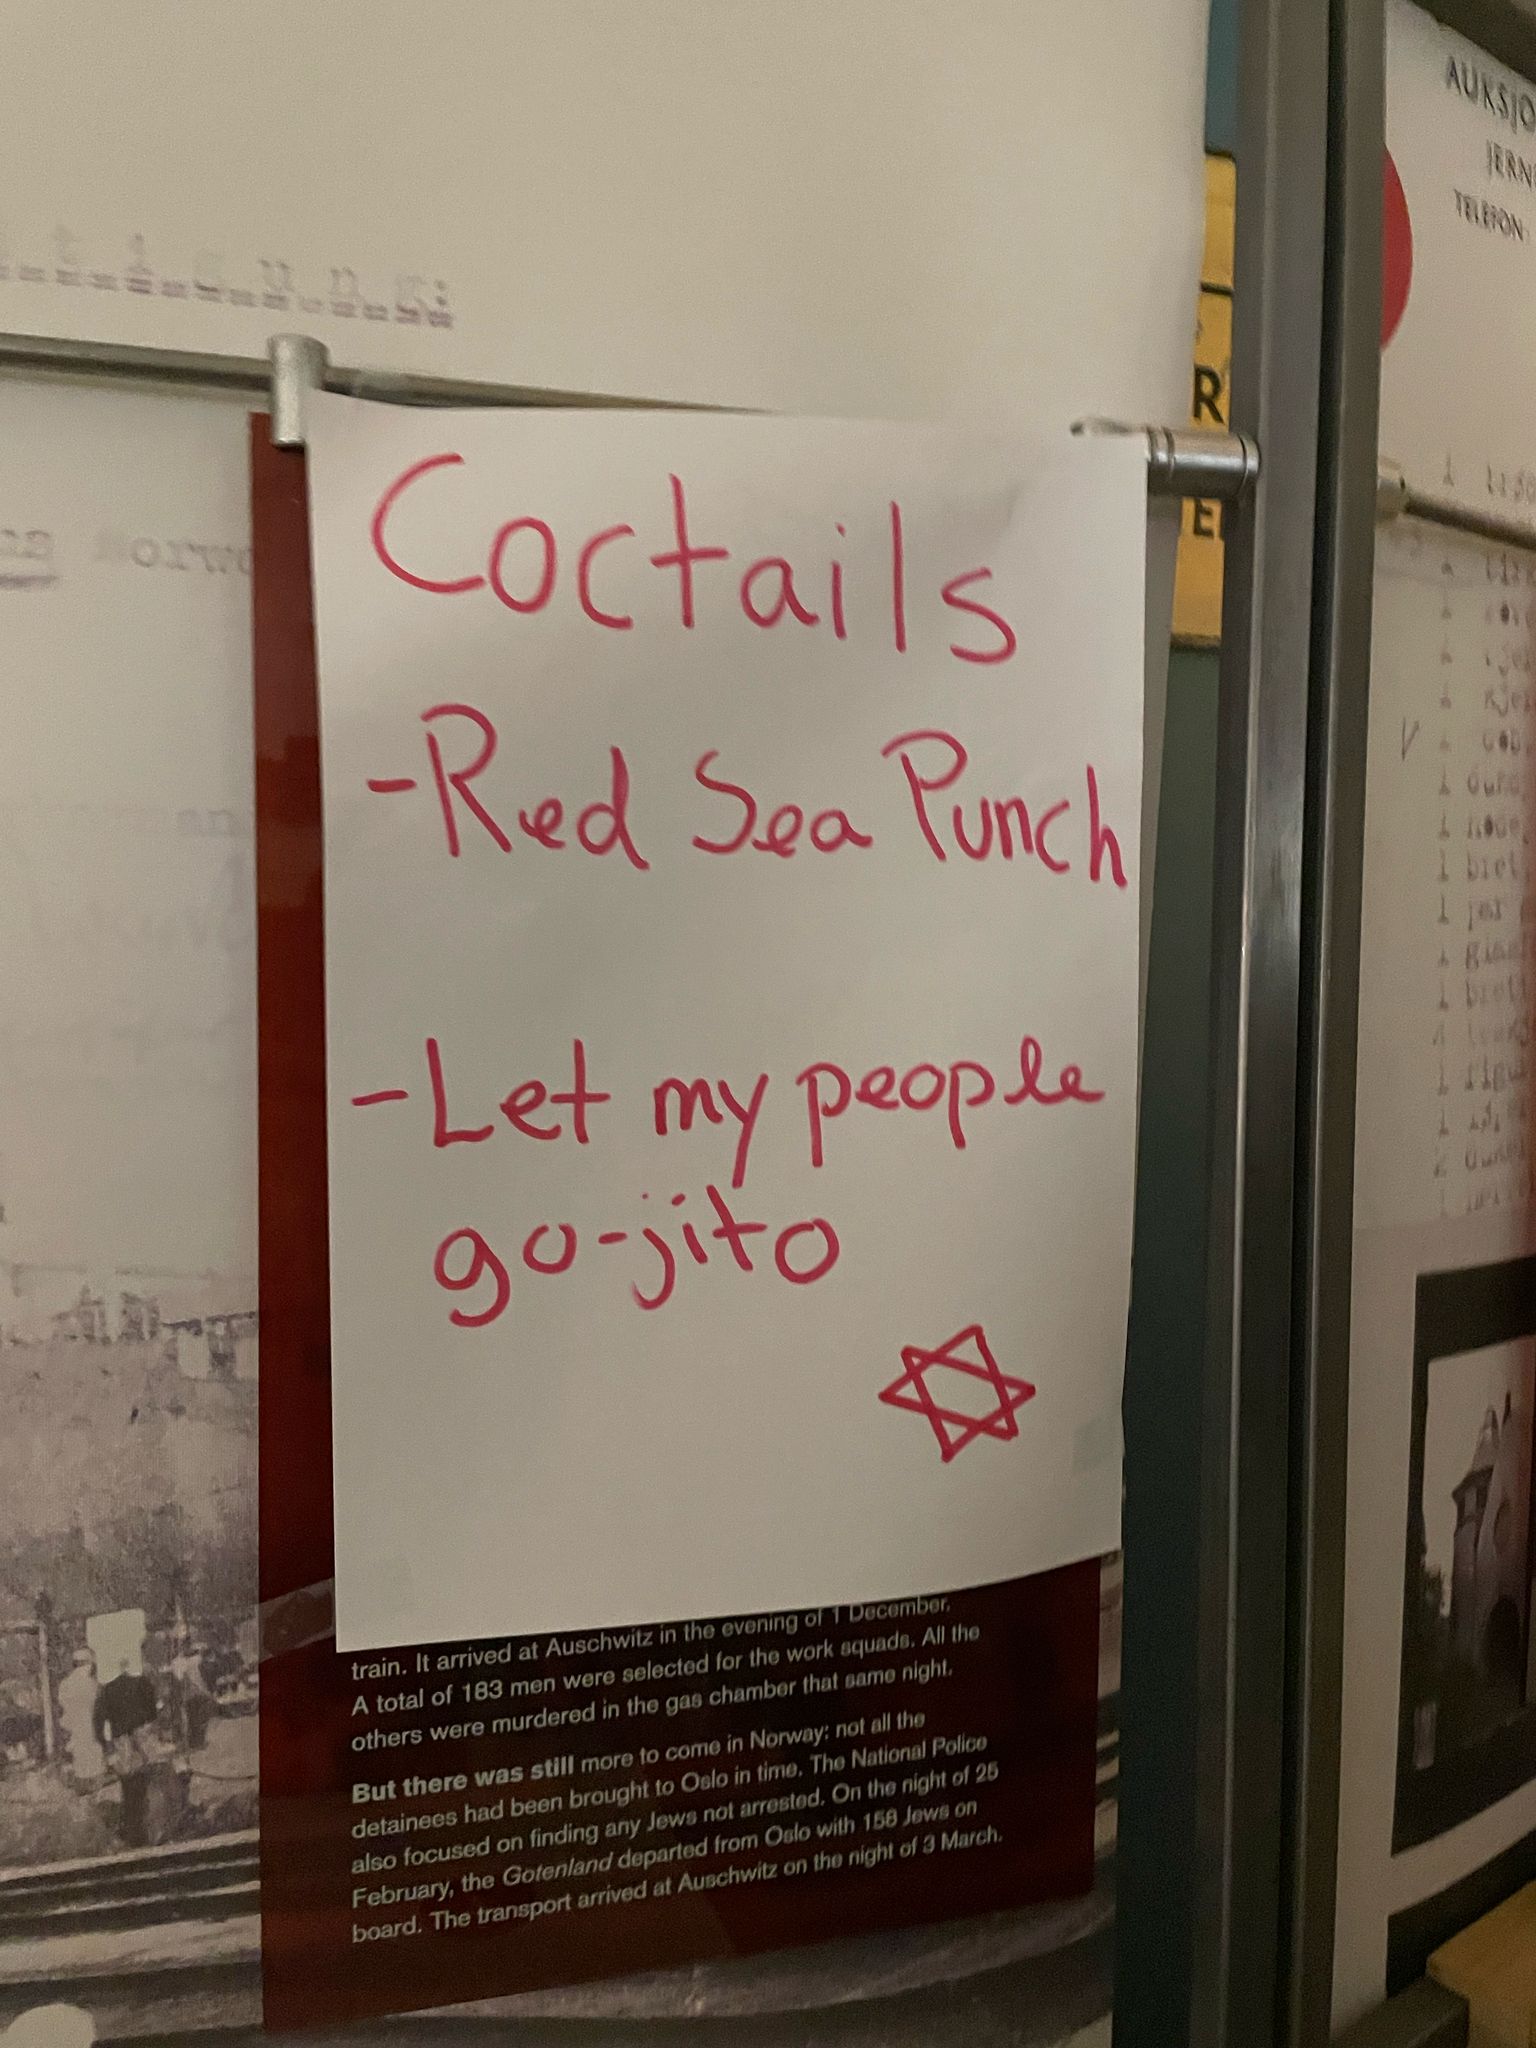 AUKSJO
JERN
TELEFON:
R
E
Coctails
-Red Sea Punch
-Let my people
go-jito
train. It arrived at Auschwitz in the evening of 1 December.
A total of 183 men were selected for the work squads. All the
others were murdered in the gas chamber that same night.
But there was still more to come in Norway: not all the
detainees had been brought to Oslo in time. The National Police
also focused on finding any Jews not arrested. On the night of 25
February, the Gotenland departed from Oslo with 158 Jews on
board. The transport arrived at Auschwitz on the night of 3 March.